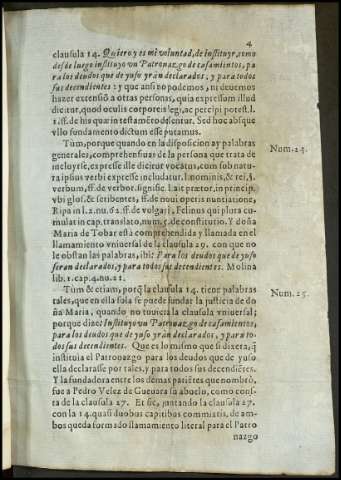 4
clausula 14. Quiero y es mi voluntad, de instituyr, como
desde luego instituyo vn Patronazgo de casamientos, pa
ra los deudos que de yuso yràn declarados, y para todos
sus decendientes: y que ansi no podemos, ni deuemos
hazer extensiõ a otras personas, quia expressum illud
dicitur, quod oculis corporeis legi, ac percipi potest. l.
1. ff. de his quæ in testamẽto delentur. Sed hoc absque
vllo fundamento dictum esse putamus.
Tùm, porque quando en la disposicion ay palabras
generales, comprehensiuas de la persona que trata de
incluyrse, expresse ille dicitur vocatus, cum sub natu-
ra ipsius verbi expresse includatur. l. nominis, & rei, §.
verbum, ff. de verbor. signific. l. ait prætor, in princip.
vbi glos. & scribentes, ff. de noui operis nunciatione,
Ripa in l. 2. nu. 62. ff. de vulgari, Felinus qui plura cu-
mulat in cap. translato, num. 5. de constitutio. Y doña
Maria de Tobar està comprehendida y llamada en el
llamamiento vniuersal de la clausula 29. con que no
le obstan las palabras, ibi: Para los deudos que de yuso
seran declarados, y para todos sus decendientes. Molina
lib. 1. cap. 4. nu. 22.
Num. 24.
Tùm & etiam, porq̃ la clausula 14. tiene palabras
tales, que en ella sola se puede fundar la justicia de do
ña Maria, quando no tuuiera la clausula vniuersal;
porque dize: Instituyo vn Patronazgo de casamientos,
para los deudos que de yuso yràn declarados, y para to-
dos sus decendientes. Que es lo mismo que si dixera, q̃
instituia el Patronazgo para los deudos que de yuso
ella declarasse por tales, y para todos sus decendiẽtes.
Y la fundadora entre los demas pariẽtes que nombrò,
fue a Pedro Velez de Gueuara su abuelo, como cons-
ta de la clausula 27. Et sic, juntando la clausula 27.
con la 14. quasi duobus capitibus commistis, de am-
bos queda formado llamamiento literal para el Patro
nazgo
Num. 25.